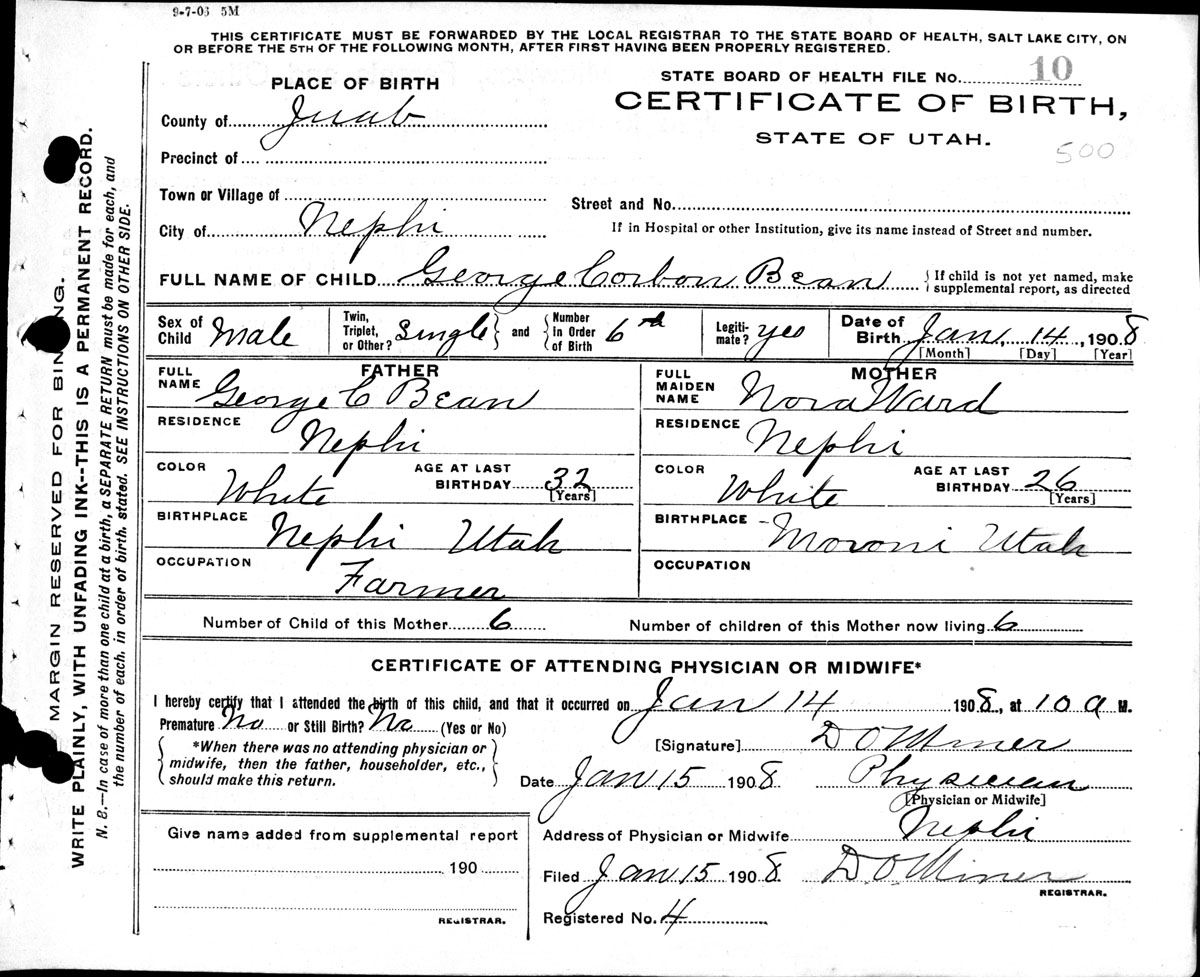 9-7-06 5M
THIS CERTIFICATE MUST BE FORWARDED BY THE LOCAL REGISTRAR TO THE STATE BOARD OF HEALTH, SALT LAKE CITY, ON
OR BEFORE THE 5TH OF THE FOLLOWING MONTH, AFTER FIRST HAVING BEEN PROPERLY REGISTERED.
MARGIN RESERVED FOR BINDING.
WRITE PLAINLY, WITH UNFADING INK--THIS IS A PERMANENT RECORD.
N. B.—In case of more than one child at a birth, a SEPARATE RETURN must be made for each, and
the number of each, in order of birth, stated. SEE INSTRUCTIONS ON OTHER SIDE.
PLACE OF BIRTH
STATE BOARD OF HEALTH FILE No. 10
CERTIFICATE OF BIRTH,
STATE OF UTAH.
500
County of Juab
Precinct of
Town or Village of
Street and No.
City of Nephi
If in Hospital or other Institution, give its name instead of Street and number.
FULL NAME OF CHILD George Corbon Bean
If child is not yet named, make
supplemental report, as directed
Sex of Child Male
Twin, Triplet, or Other? Single
and
Number In Order of Birth 6th
Legiti-mate? yes
Date of Birth Jan. 14, 1908
[Month] [Day] [Year]
FATHER
FULL NAME George C Bean
RESIDENCE
Nephi
COLOR White
AGE AT LAST BIRTHDAY 32
[Years]
BIRTHPLACE
Nephi Utah
OCCUPATION
Farmer
MOTHER
FULL MAIDEN NAME Nora Ward
RESIDENCE
Nephi
COLOR White
AGE AT LAST BIRTHDAY 26
[Years]
BIRTHPLACE
Moroni Utah
OCCUPATION
Number of Child of this Mother 6
Number of children of this Mother now living 6
CERTIFICATE OF ATTENDING PHYSICIAN OR MIDWIFE*
I hereby certify that I attended the birth of this child, and that it occurred on Jan 14 1908, at 10 a M.
Premature No or Still Birth? No (Yes or No)
*When there was no attending physician or
midwife, then the father, householder, etc.,
should make this return.
[Signature] D O Miner
Date Jan 15 1908 Physician
[Physician or Midwife]
Give name added from supplemental report
190
REGISTRAR.
Address of Physician or Midwife Nephi
Filed Jan 15 1908 D O Miner
REGISTRAR.
Registered No. 4